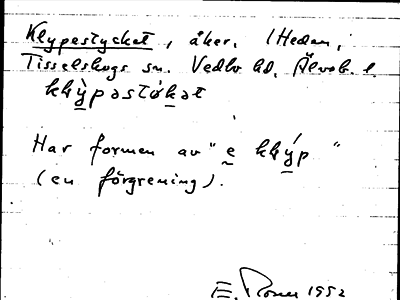 Klypestycket, åker, (Hedan,
Tisselskogs sn. Vedbo hd, Älvsb. l.
klỳpəstòkət
Har formen av "e klýp"
(en förgrening).
E. 1952